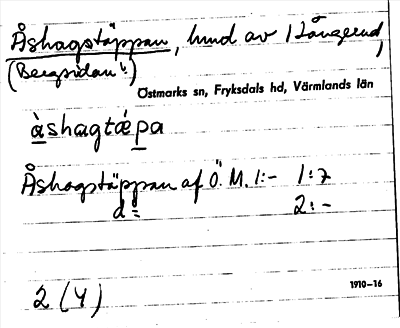 Åshagstäppan, hmd av Långerud,
(Bergsidan)
Östmarks sn, Fryksdals hd, Värmlands län
àshagtǽpa
Åshagstäppan af Ö. M. 1:- 1:7
d= 2:-
1910-16
2 (4)